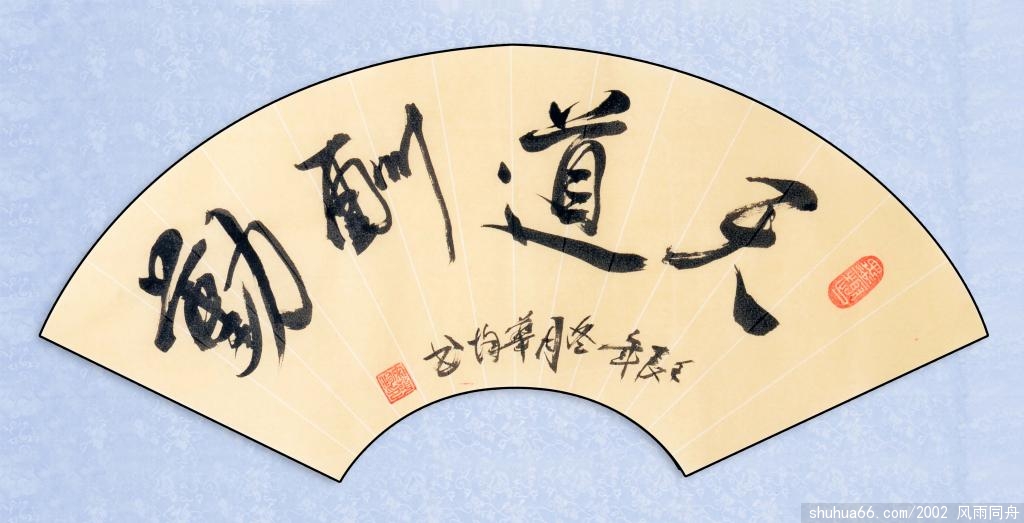 天道酬勤
壬辰年冬月華均书
shuhua66.com/2002 风雨同舟